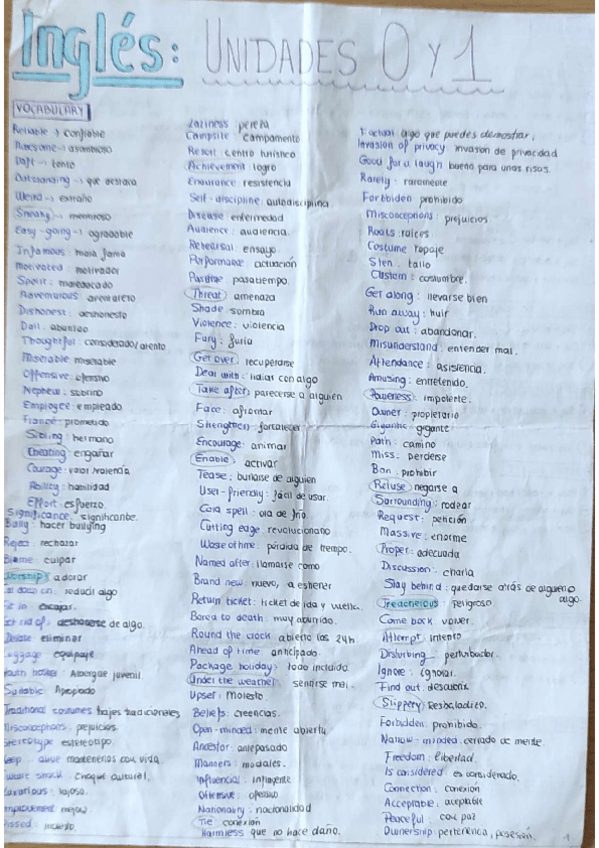 Inglés: UNIDADES 0 Y 1
VOCABULARY
Reliable → confiable
Awesome → asombroso
Daft → tonto
Outstanding → que destaca
Weird → extraño
Sneaky → mentiroso
Easy-going → agradable
Infamous: mala fama
Motivated: motivador
Spoilt: maleducado
Adventurous: aventurero
Dishonest: deshonesto
Dull: aburrido
Thoughtful considerado/atento
Miserable miserable
Offensive: ofensivo
Nephew: sobrino
Employee: empleado
Fiancé: prometido
Sibling: hermano
Cheating: engañar
Courage: valor/valencia
Ability: habilidad
Effort: esfuerzo
Significance: significante.
Bully: hacer bullying
Reject: rechazar
Blame: culpar
Worship: adorar
cut down on: reducir algo
Fit in: encajar.
Get rid of: deshacerse de algo.
eliminar
Luggage equipaje
Youth hostel: Albergue juvenil.
Suitable Apropiado
Traditional costumes trajes tradicionales
Misconceptions: prejuicios
Stereotype estereotipo
Keep alive mantenerlos con vida.
Culture shock: Choque cultural.
Luxurious: lujoso.
Improvement mejora
Pissed: molesto
Laziness: pereza
Campsite: campamento
Resort centro turístico
Achievement: logro
Endurance: resistencia
Self-discipline: autodisciplina
Disease enfermedad
Audience: audiencia.
Rehearsal: ensayo
Performance: actuación
Pastime: pasatiempo.
Threat: amenaza
Shade sombra
Violence: violencia
Fury: furia
Get over: recuperarse
Deal with: lidiar con algo
Take after: parecerse a alguien
Face: afrontar
Strengthen: fortalecer
Encourage: animar
Enable: activar
Tease: burlarse de alguien
User-friendly: fácil de usar.
Cold spell: ola de frío.
Cutting edge: revolucionario
Waste of time: pérdida de tiempo.
Named after: llamarse como
Brand new: nuevo, a estrener
Return ticket: ticket de ida y vuelta.
Bored to death: muy aburrido.
Round the clock abierto las 24h.
Ahead of time: anticipado.
Package holiday: todo incluido.
Under the weather: sentirse mal.
Upset: Molesto
Beliefs: creencias.
Open-minded: mente abierta
Ancestor: antepasado
Manners: modales.
Influencial: influyente
Ofensive: ofensivo
Nationality: nacionalidad
Tie conexión
Harmless que no hace daño.
Factual algo que puedes demostrar.
Invasion of privacy: invasion de privacidad
Good for a laugh bueno para unas risas.
Rarely: raramente
Forbidden prohibido
Misconceptions: prejuicios
Roots: raíces.
Costume ropaje
Stem: tallo
Custom: costumbre.
Get along: llevarse bien
Run away: huir
Drop out: abandonar.
Misunderstand: entender mal.
Attendance: asistencia.
Amusing: entretenido.
Powerless: impotente.
Owner: propietario
Gigantic: gigante
Path: camino
Miss: perderse
Ban: prohibir
Refuse negarse a
Sorrounding: rodear
Request: petición
Massive: enorme
Proper: adecuada
Discussion: charla
Stay behind: quedarse atrás de alguien o algo.
Treacherous: peligroso
Come back volver.
Attempt intento
Disturbing perturbador.
Ignore: ignorar.
Find out: descubrir.
Slippery Resbaladizo.
Forbidden: prohibido.
Narrow-minded: cerrado de mente.
Freedom: libertad.
Is considered es considerado.
Connection: conexión
Acceptable: aceptable
Peaceful: con paz
Ownership pertenencia, posesión.
1